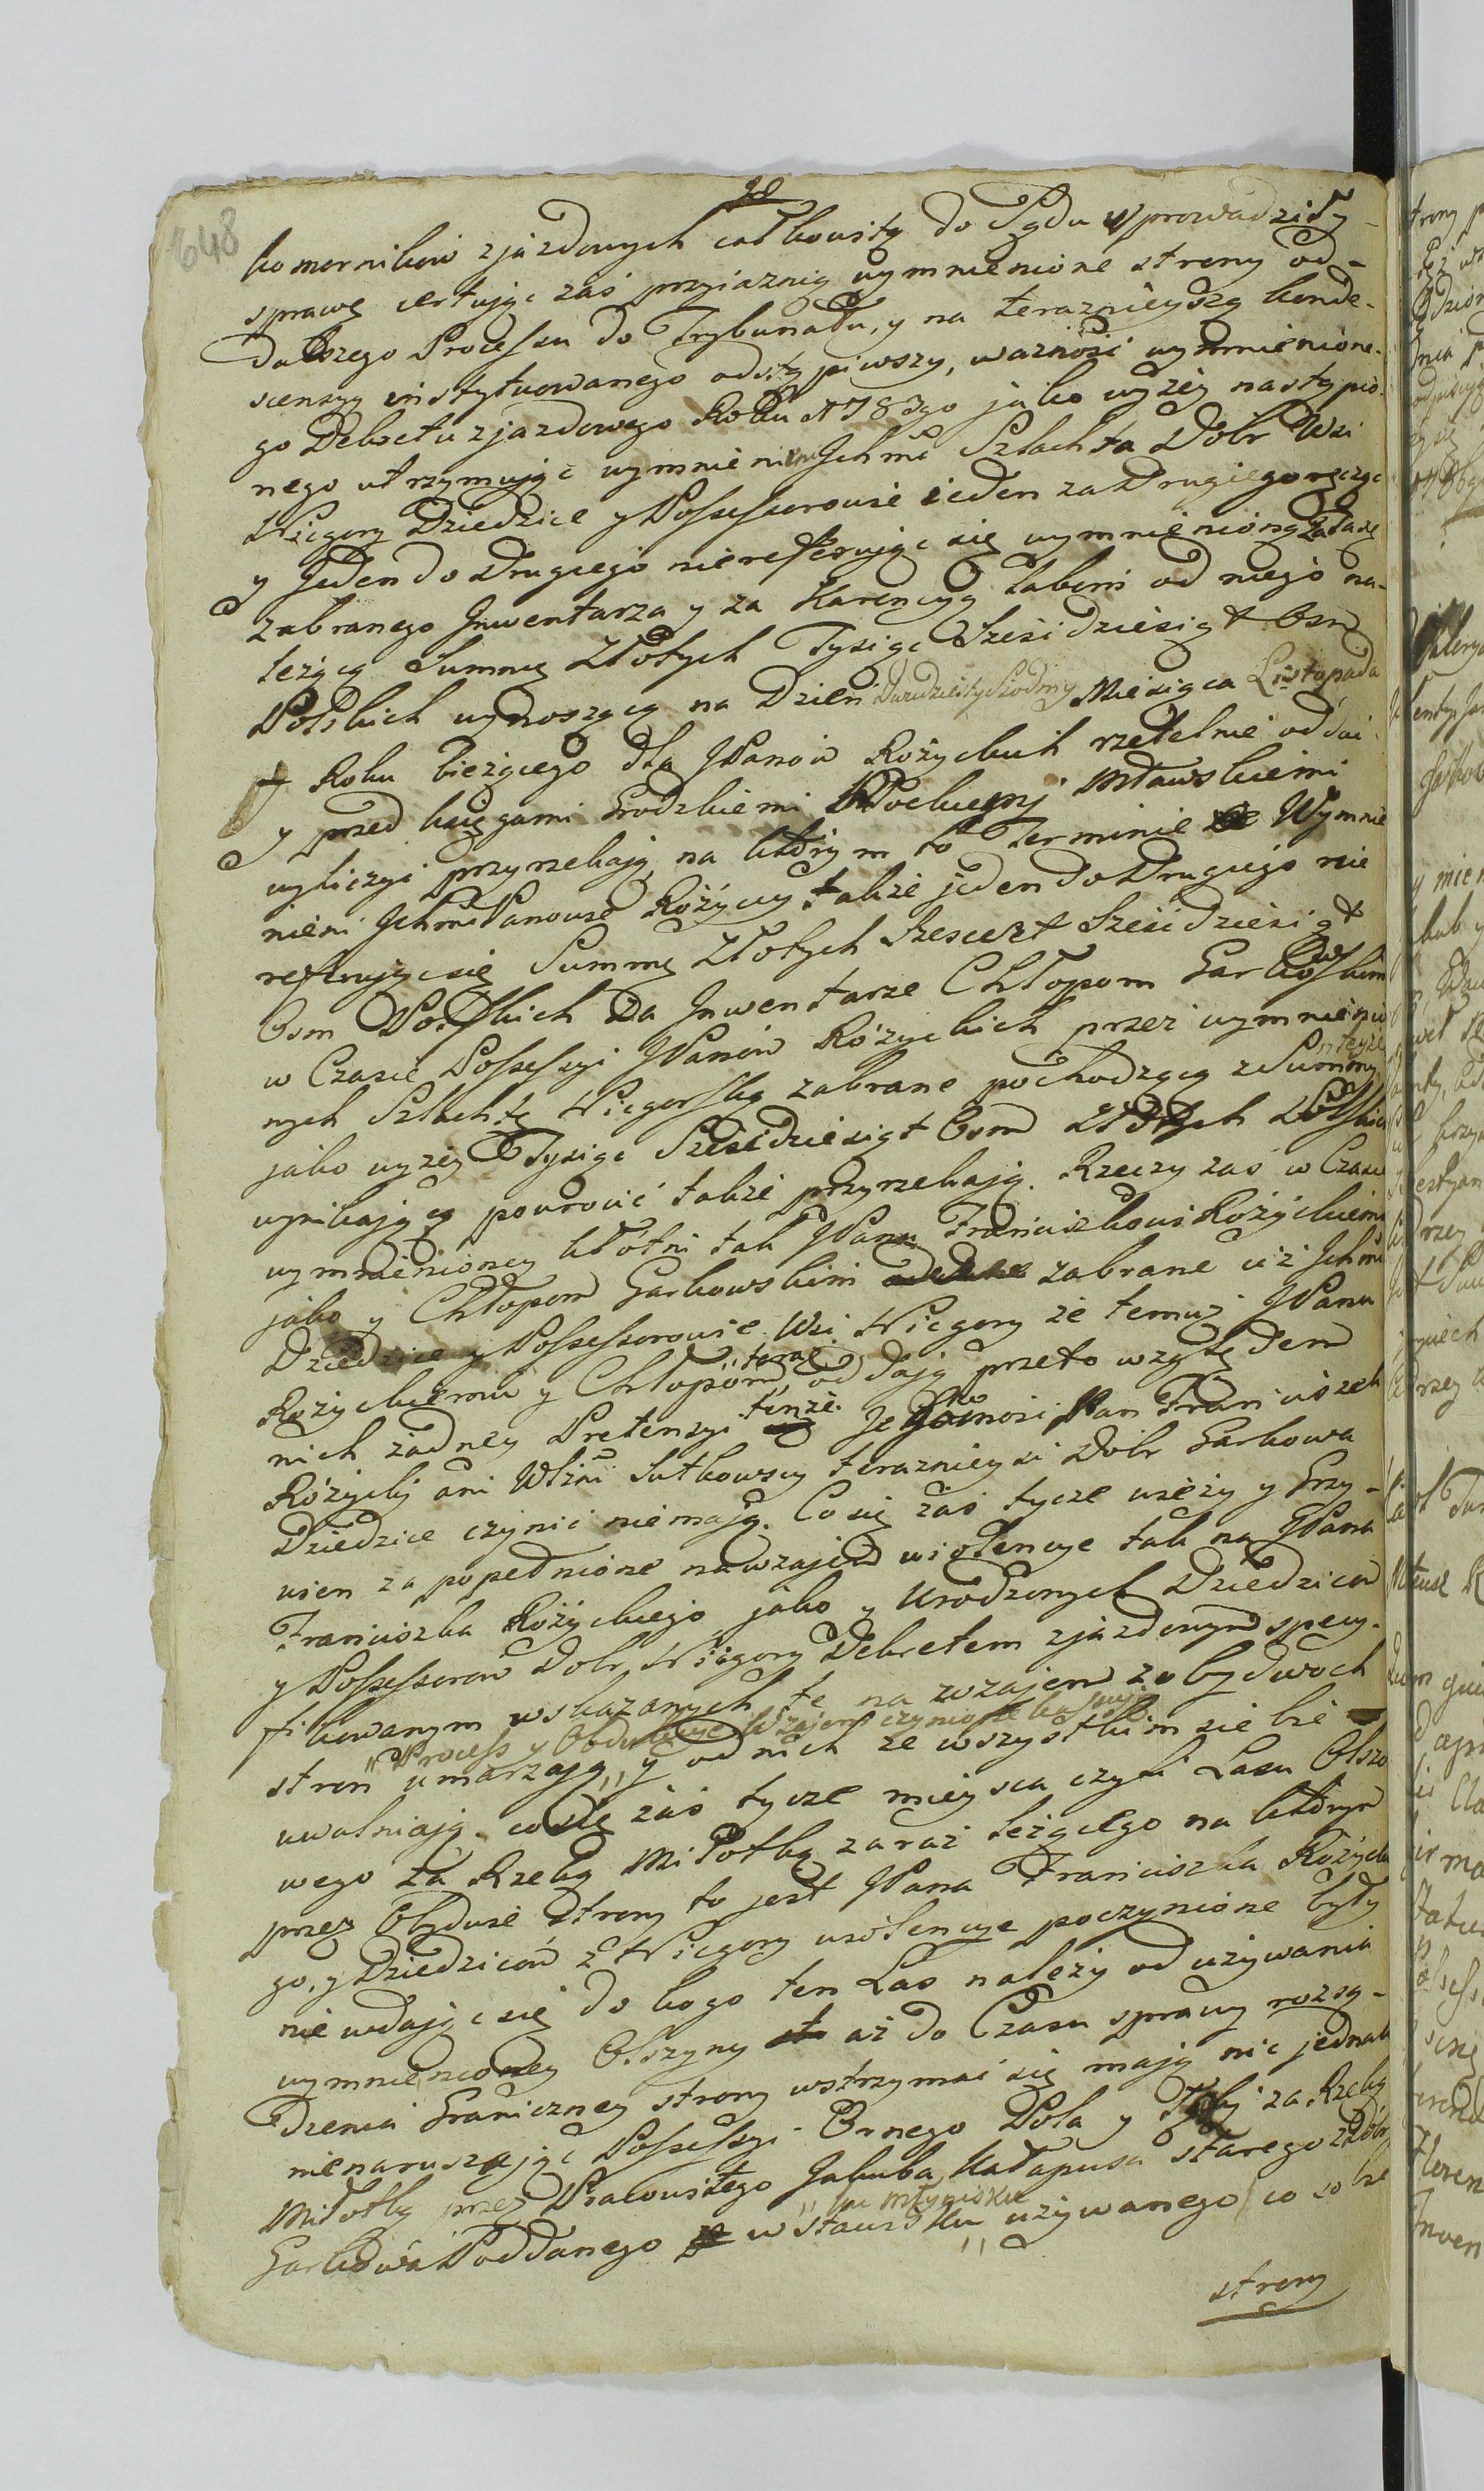 648
komorników zjazdowych całkowitą do Sądu wprowadziły
sprawę certując zaś przyiaznią wymnienione strony od-
dalszego Procesu do Trybunału, y na teraznieyszą konde-
scensyą instytuowanego odstąpiwszy, ważność wymnienione-
go Dekretu zjazdowego Roku 1783go jako wyżey nastąpio-
nego utrzymując wymnieni Ichmć Szlachta Dobr Wsi
Niegory Dziedzice y Possessorowie ieden za Drugiego ręcząc
y Jeden do Drugiego nie referując się wymnienioną
zabranego Inwentarza y za Karencyą Laboru od niego na-
leżącą Summę Złotych Tysiąc Sześćdziesiąt Osm
Polskich wynoszącą na Dzień Dwudziesty Siodmy Miesiąca Listopada
Roku bieżącego dla JPanów Rożyckich rzetelnie oddać
y przed księgami Grodzkiemi Mławskiemi
wyliczyć przyrzekają, na którym to Terminie Wymnie
nieni Ichmć Panowie Rożyccy także jeden do Drugiego nie
referując się Summę Złotych Sześćset Sześćdziesiąt
Osm Polskich za Inwentarze Chłopom Garkowskim
w Czasie Possessyi JPanów Rożyckich przez wymnienio
nych Szlachtę Niegorską zabrane pochodzącą z Summy
teyże
jako wyżey Tysiąc Sześćdziesiąt Osm Złotych Polskich
wynikającą powrocić także przyrzekają. Rzeczy zaś w Czasie
wymnienioney kłotni tak JPanu Franciszkowi Rożyckiemu
jako y Chłopom Garkowskim zabrane iż Ichmć
Dziedzice y Possessorowie Wsi Niegory że temuż JPanu
Rożyckiemu y Chłopom oddają przeto względem
nich żadney Pretensyi tenże Jegomość Pan Franciszek
Rożycki ani Wlżni Sutkowscy teraznieysi Dobr Garkowa
Dziedzice czynić niemają. Co się zaś tycze wieży y Grzy-
wien za popełnione nawzajem wiolencye tak na JPana
Franciszka Rożyckiego jako y Urodzonych Dziedziców
y Possessorów Dobr Niegory Dekretem zjazdowym specy-
fikowanym wskazanych, te na wzajem z obydwoch
Process y wzajem czynione kassują
stron umarzają,, y od nich ze wszystkim siebie
uwalniają. co się zaś tycze mieysca czyli Lasu Olszo
wego za Rzeką Miłotką zaraz leżącego na którym
przez Obydwie strony to jest JPana Franciszka Rożyckie
go, y Dziedziców z Niegory wiolencye poczynione były
nie wdając się do kogo ten Las należy od używania
wymnienioney Olszyny aż do Czasu sprawy rozsą-
dzenia Graniczney strony wstrzymać się mają nic jednak
nienaruszając Possessyi Ornego Pola y Łąki za Rzeką
Miłotką przez Pracowitego Jakuba Kałapusa starego z Dobr
na Młynisku
Garkowa Poddanego w stawisku,, używanego co sobie
strony